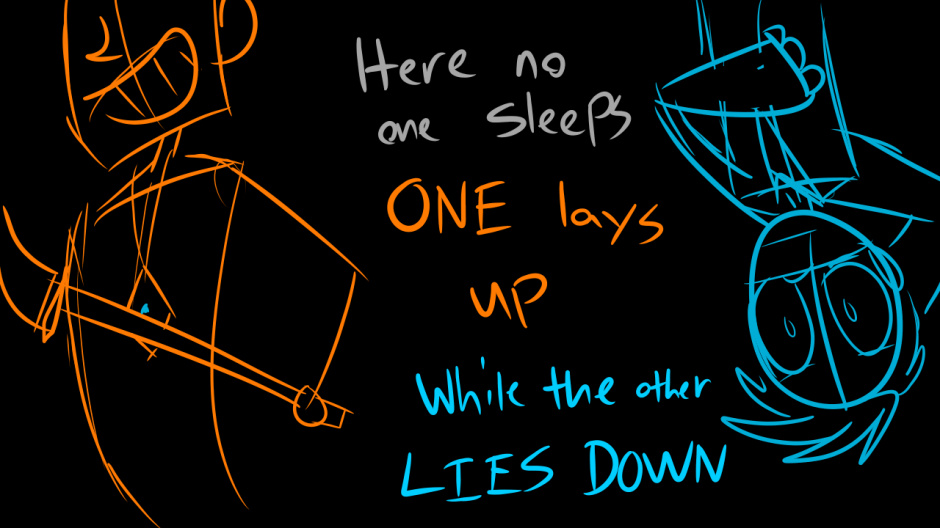 Here no
one sleeps
ONE lays
up
While the other
LIES DOWN